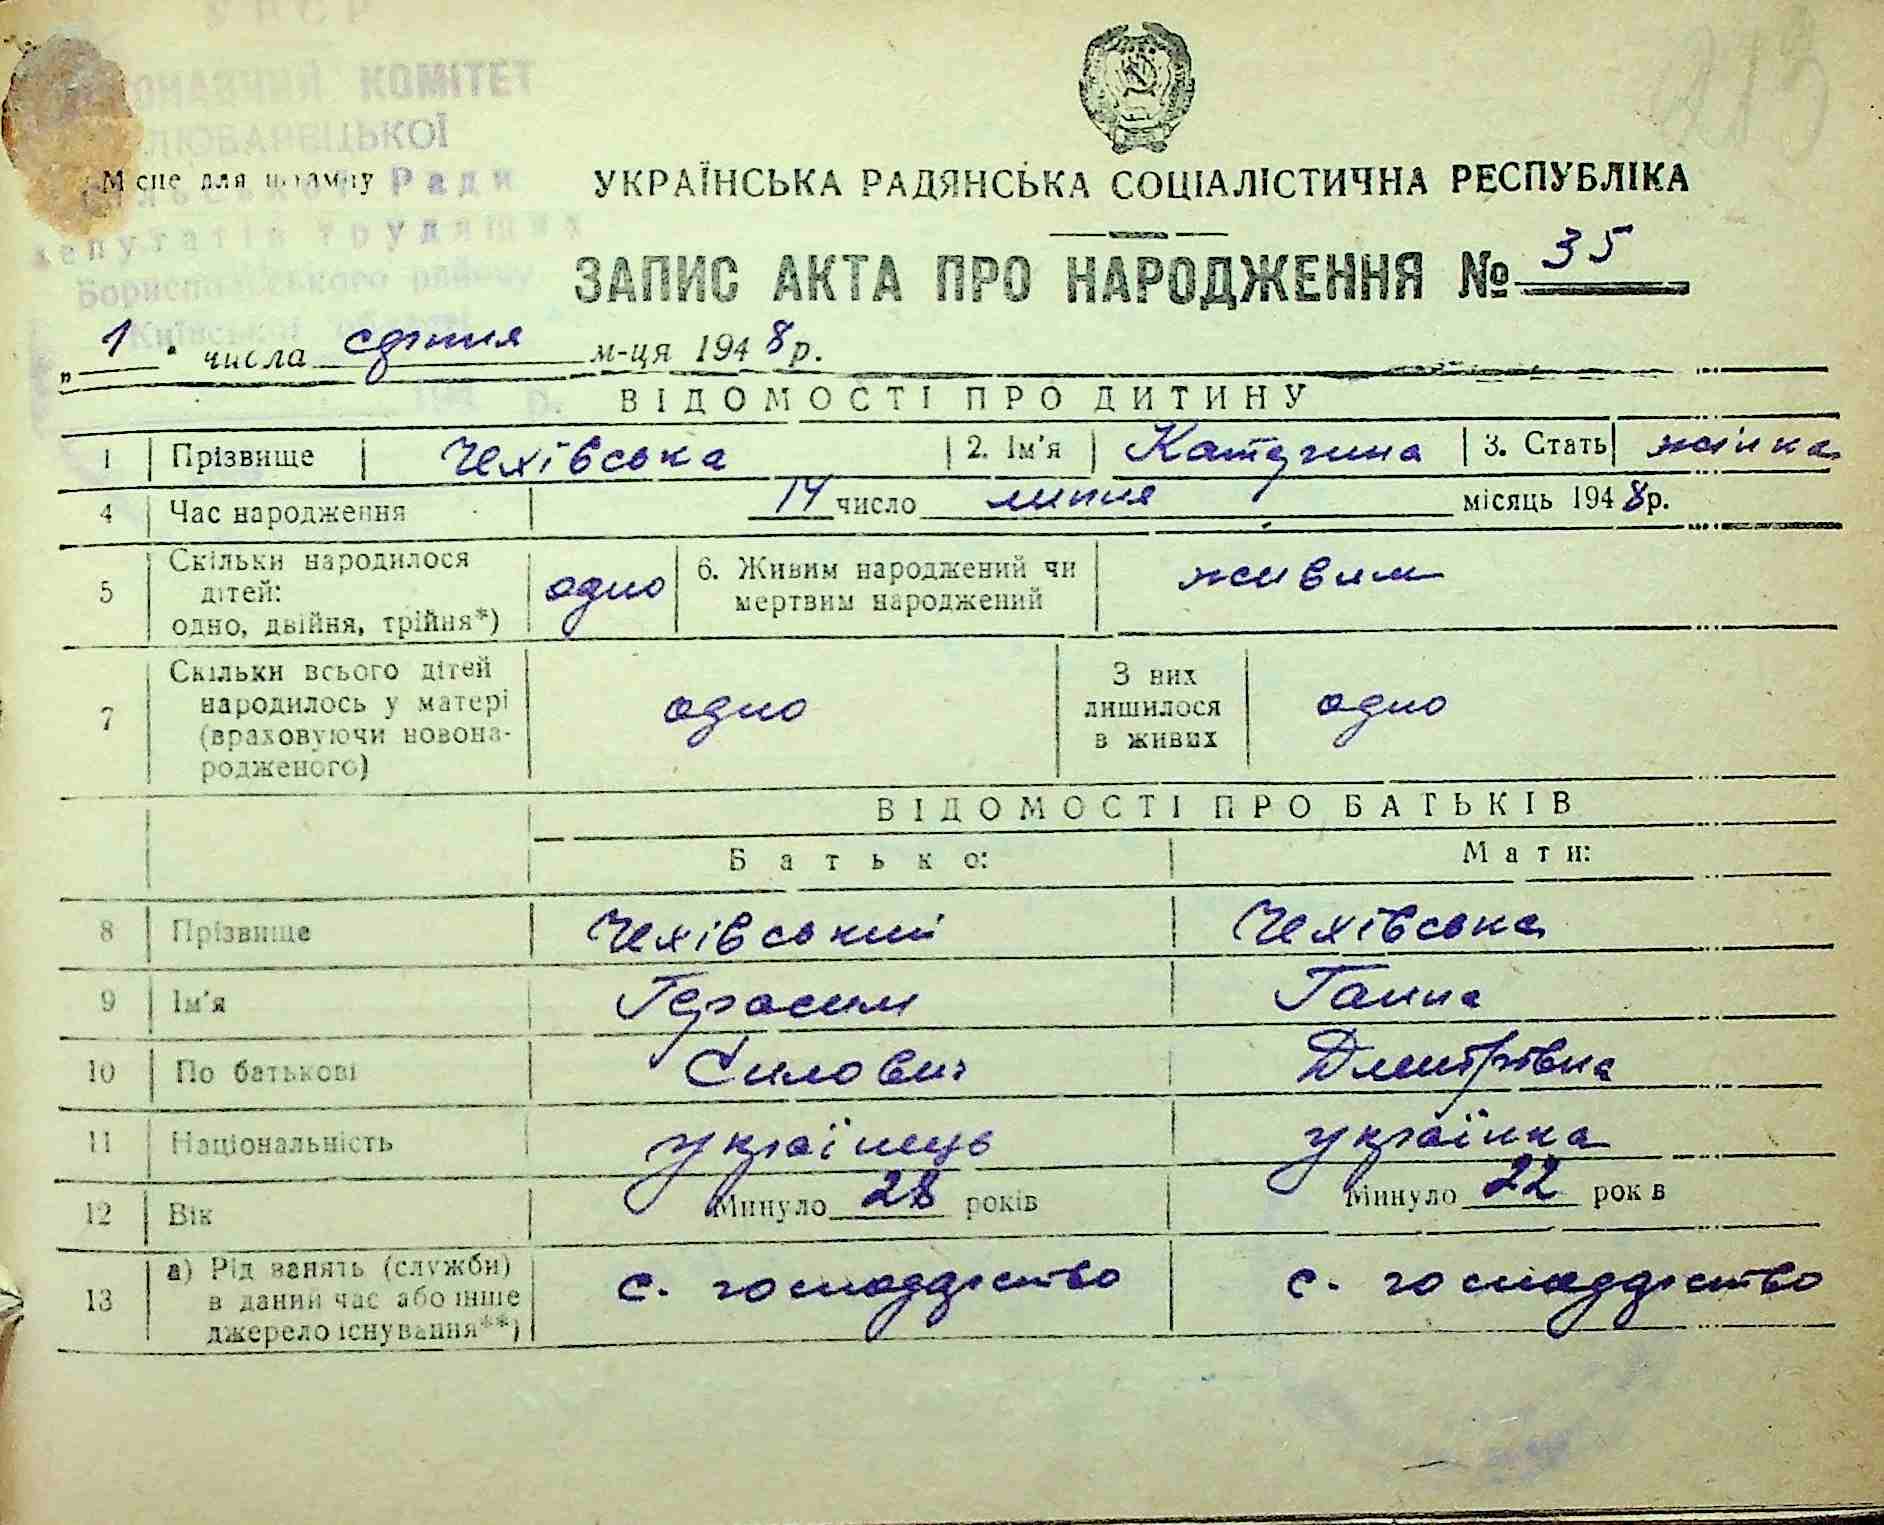 УРСР
ВИКОНАВЧИЙ КОМІТЕТ
ЛЮБАРЕЦЬКОЇ
сільської Ради
депутатів трудящих
Бориспільського району
Київської області
213
Місце для штампу
УКРАЇНСЬКА РАДЯНСЬКА СОЦІАЛІСТИЧНА РЕСПУБЛІКА
ЗАПИС АКТА ПРО НАРОДЖЕННЯ № 35
„ 1 " числа серпня м-ця 1948 р.
ВІДОМОСТІ ПРО ДИТИНУ
1 Прізвище Чехівська 2. Ім'я Катерина 3. Стать жінка
4 Час народження 14 число липня місяць 1948 р.
5 Скільки народилося дітей: одно, двійня, трійня*) одно 6. Живим народжений чи мертвим народжений живим
7 Скільки всього дітей народилось у матері (враховуючи новонародженого) одно З них лишилося в живих одно
ВІДОМОСТІ ПРО БАТЬКІВ
Батько: Мати:
8 Прізвище Чехівський Чехівська
9 Ім'я Герасим Ганна
10 По батькові Силович Дмитрівна
11 Національність українець українка
12 Вік Минуло 28 років Минуло 22 рок в
13 а) Рід занять (служби) в даний час або інше джерело існування**) с. господарство с. господарство